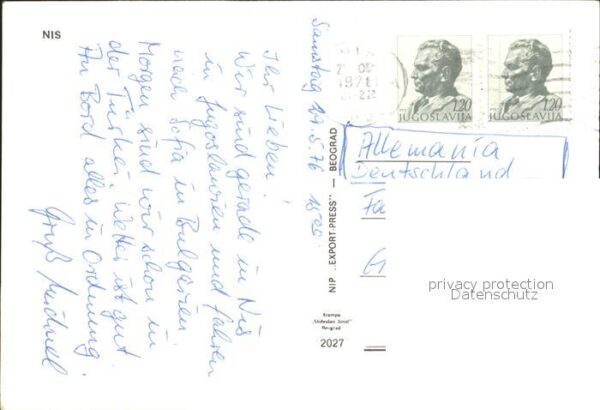 NIS
Samstag
Ihr Lieben!
Wir sind gerade in Nis
in Jugoslawien und fahren
nach Sofia in Bulgarien.
Morgen sind wir schon in
der Türkei, Wetter ist gut
An Bord alles in Ordnung!
Gruß Michael
1,20
JUGOSLAVIJA
1,20
JUGOSLAVIJA
Allemania
Deutschland
NIP „EXPORT-PRESS“ — BEOGRAD
Štampa
Beograd
2027
privacy protection
Datenschutz